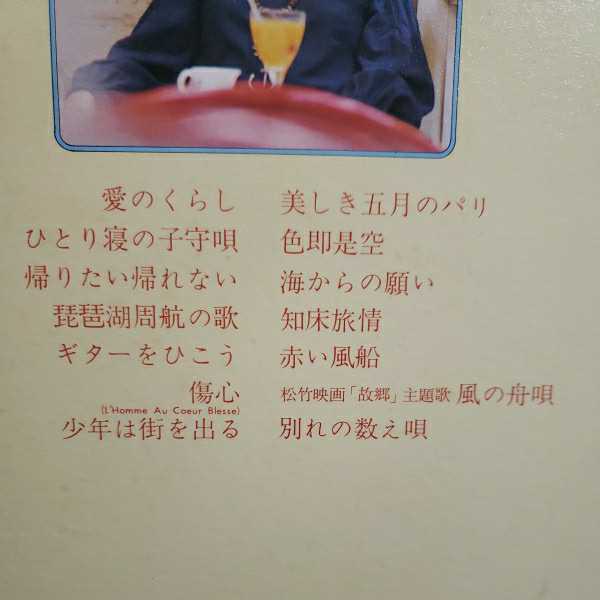 愛のくらし
ひとり寝の子守唄
帰りたい帰れない
琵琶湖周航の歌
ギターをひこう
傷心
(L'Homme Au Coeur Blesse)
少年は街を出る
美しき五月のパリ
色即是空
海からの願い
知床旅情
赤い風船
松竹映画「故郷」主題歌 風の舟唄
別れの数え唄